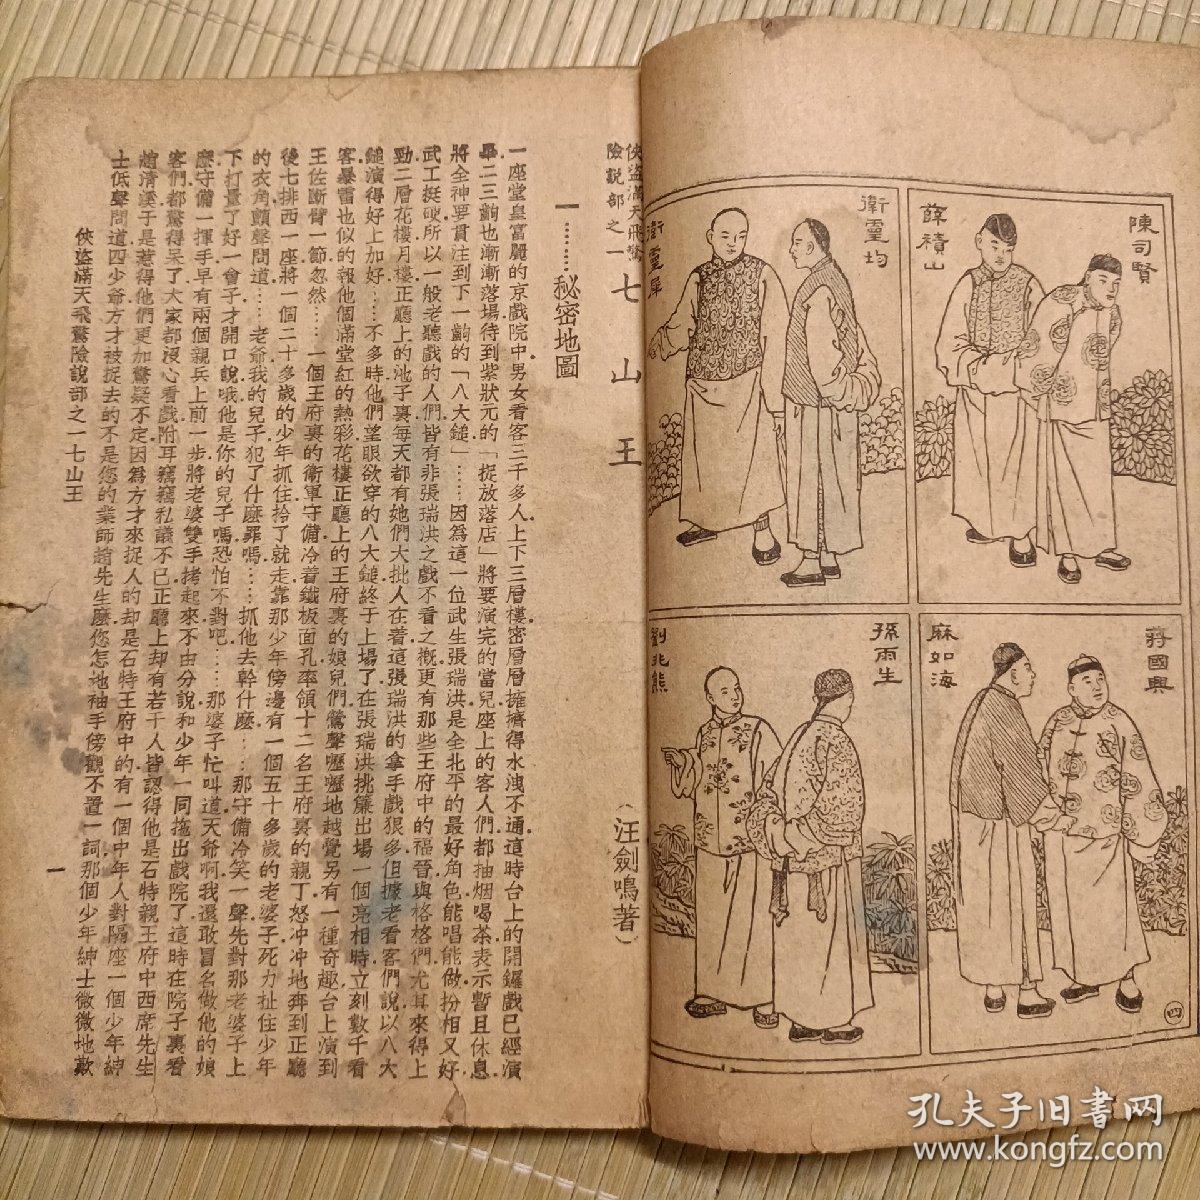 陳司賢
薛積山
衛靈均
衛靈犀
蔣國興
麻如海
孫雨生
劉兆熊
四
俠盜滿天飛驚
險說部之一
七山王
（汪劍鳴著）
一………秘密地圖
一座堂皇富麗的京戲院中男女看客三千多人上下三層樓密層層擁擠得水洩不通這時台上的開鑼戲已經演
畢二三齣也漸漸落場待到紫狀元的「捉放落店」將要演完的當兒座上的客人們都抽烟喝茶表示暫且休息
將全神要貫注到下一齣的「八大鎚」……因爲這一位武生張瑞洪是全北平的最好角色能唱能做扮相又好
武工挺硬所以一般老聽戲的人們皆有非張瑞洪之戲不看之概更有那些王府中的福晉與格格們尤其來得上
勁二層花樓月樓正廳上的池子裏每天都有她們大批人在着這張瑞洪的拿手戲狠多但據老看客們說以八大
鎚演得好上加好……不多時他們望眼欲穿的八大鎚終于上場了在張瑞洪挑簾出場一個亮相時立刻數千看
客暴雷也似的報他個滿堂紅的熱彩花樓正廳上的王府裏的娘兒們鶯聲嚦嚦地越覺另有一種奇趣台上演到
王佐斷臂一節忽然……一個王府裏的衛軍守備冷着鐵板面孔率領十二名王府裏的親丁怒冲冲地奔到正廳
後七排西一座將一個二十多歲的少年抓住拾了就走靠那少年傍邊有一個五十多歲的老婆子死力扯住少年
的衣角顫聲問道……老爺我的兒子犯了什麽罪嗎……抓他去幹什麽……那守備冷笑一聲先對那老婆子上
下打量了好一會子才開口說哦他是你的兒子嗎恐怕不對吧……那婆子忙叫道天爺啊我還敢冒名做他的娘
麽守備一揮手早有兩個親兵上前一步將老婆雙手拷起來不由分說和少年一同拖出戲院了這時在院子裏看
客們都驚得呆了大家都沒心看戲附耳竊竊私議不已正廳上却有若干人皆認得他是石特親王府中西席先生
趙清溪于是惹得他們更加驚疑不定因爲方才來捉人的却是石特王府中的有一個中年人對隔座一個少年紳
士低聲問道四少爺方才被捉去的不是您的業師趙先生麽您怎地袖手傍觀不置一詞那個少年紳士微微地歎
俠盜滿天飛驚險說部之一七山王
一
孔夫子旧書网
www.kongfz.com